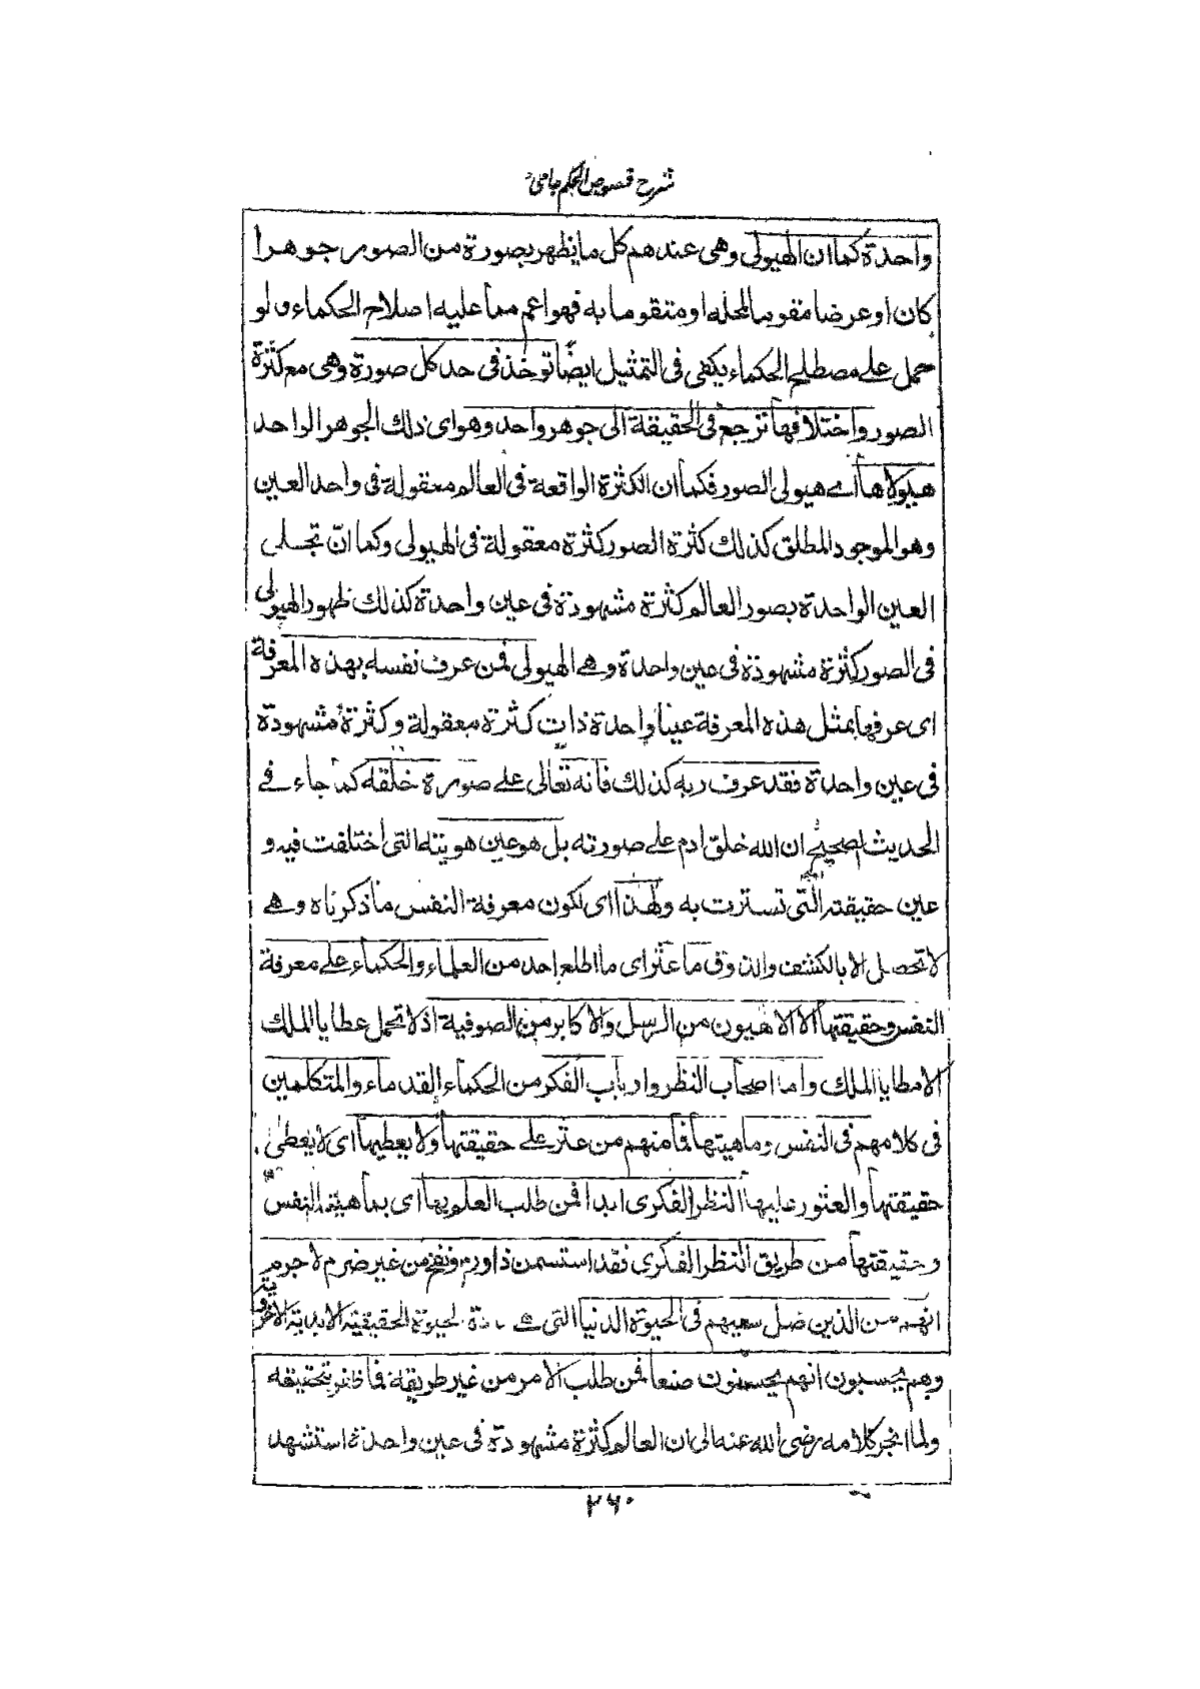 شرح فصوص الحكم جامى
واحدة كما ان الهيولى وهى عندهم كل ما يظهر بصورة من الصور جوهرا
كان او عرضا مقوما لمحله او متقوما به فهو اعم مما عليه اصلاح الحكماء ولو
حمل على مصطلح الحكماء يكفى فى التمثيل ايضا توخذ فى حد كل صورة وهى مع كثرة
الصور واختلافها ترجع فى الحقيقة الى جوهر واحد وهو اى ذلك الجوهر الواحد
هيولاها اے هيولى الصور فكما ان الكثرة الواقعة فى العالم معقولة فى واحد العين
وهو الموجود المطلق كذلك كثرة الصور كثرة معقولة فى الهيولى وكما انّ تجلى
العين الواحدة بصور العالم كثرة مشهودة فى عين واحدة كذلك ظهور الهيولى
فى الصور كثرة مشهودة فى عين واحدة وهے الهيولى فمن عرف نفسه بهذه المعرفة
اى عرفها بمثل هذه المعرفة عينا واحدة ذات كثرة معقولة وكثرة مشهودة
فى عين واحدة فقد عرف ربه كذلك فانه تعالى على صورة خلقه كما جاء فے
الحديث الصحيح ان الله خلق ادم على صورته بل هو عين هويته التى اختلفت فيه و
عين حقيقته الّتى تسترت به ولهذا اى لكون معرفة النفس ما ذكرناه وهے
لا تحصل الا بالكشف والذوق ما عثر اى ما اطلع احد من العلماء والحكماء على معرفة
النفس وحقيقتها الا الالهيون من الرسل والاكابر من الصوفية اذ لا تحمل عطايا الملك
الا مطايا الملك واما اصحاب النظر وارباب الفكر من الحكماء القدماء والمتكلمين
فى كلامهم فى النفس وماهيتها فما منهم من عثر على حقيقتها ولا يعطيها اى لا يعطى
حقيقتها والعثور عليها النظر الفكرى ابدا فمن طلب العلم بها اى بماهية النفس
وحقيقتها من طريق النظر الفكرى فقد استسمن ذا ورم ونفخ من غير ضرم لا جرم
انهم من الذين ضل سعيهم فى الحيوة الدنيا التى هے مادة لحيوة الحقيقية الابدية الاخروية
وهم يحسبون انهم يحسنون صنعا فمن طلب الامر من غير طريقه فما ظفر بتحقيقه
ولما انجر كلامه رضى الله عنه الى ان العالم كثرة مشهودة فى عين واحدة استشهد
٢٦٠